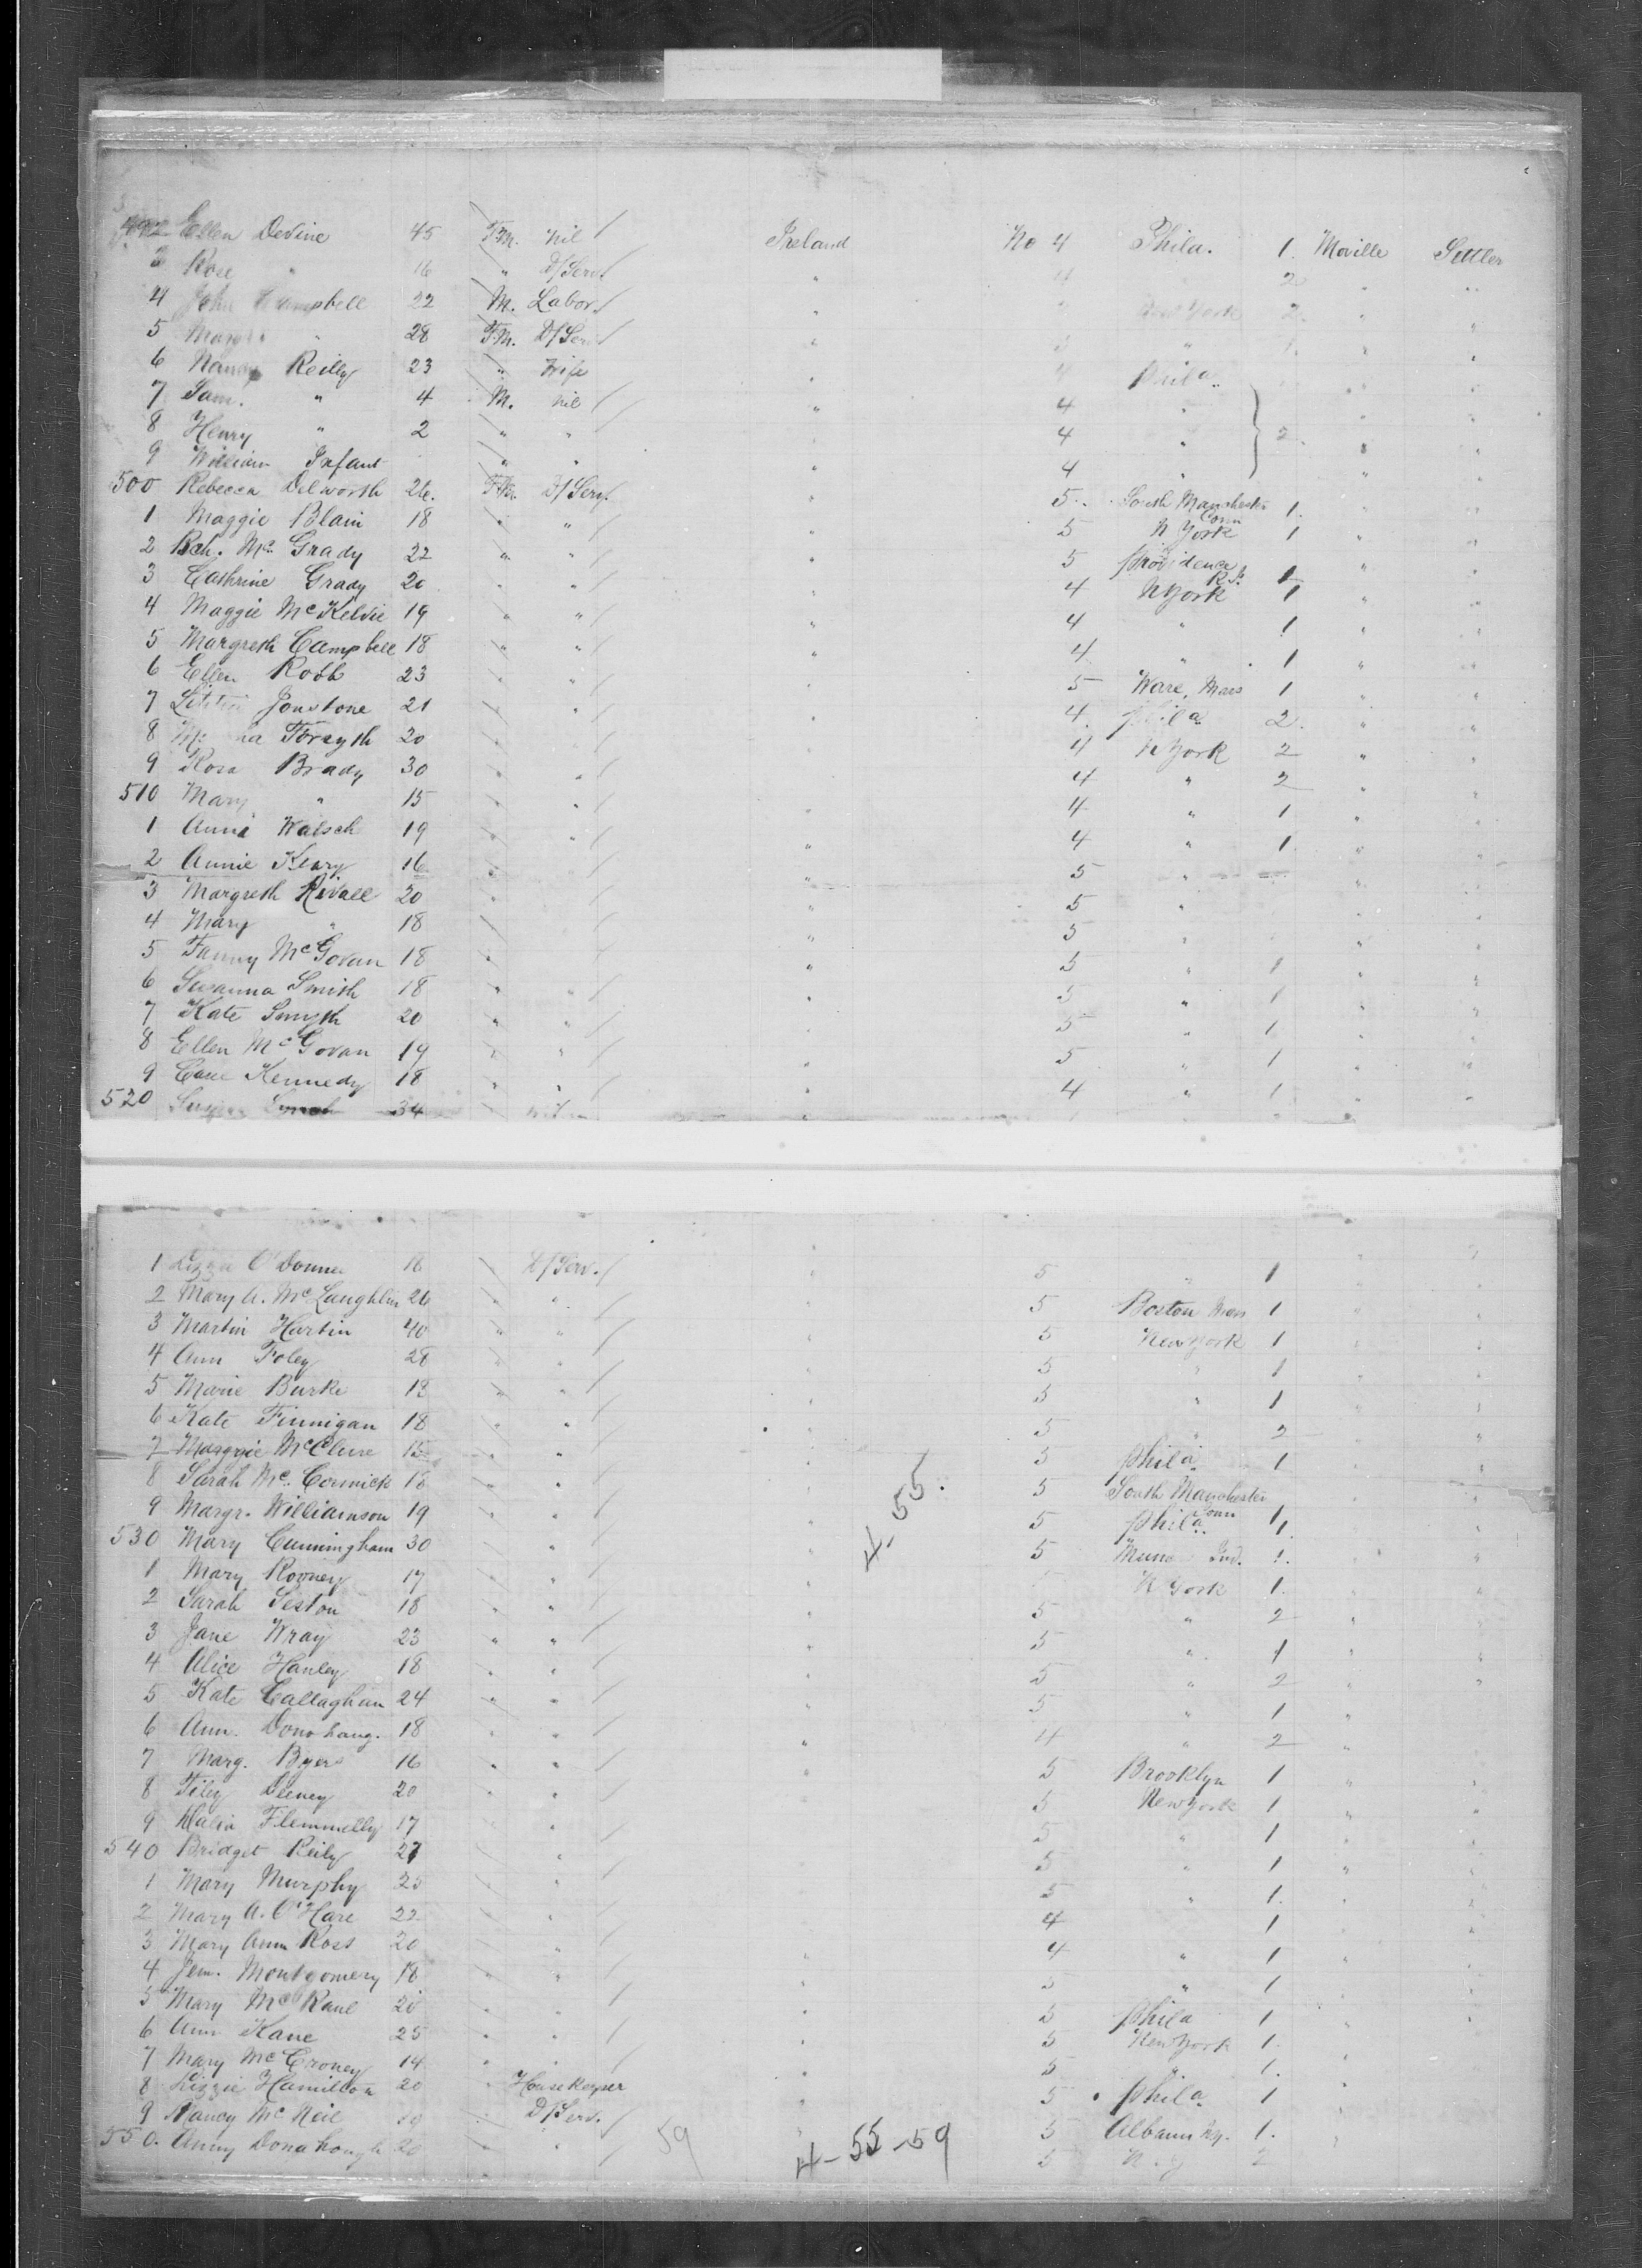 492 Ellen Devine 45 F.M. nil / Ireland No 4 Phila. 1. Moville Settler
3 Rose " 16 " D/Serv. / " 4 " 2 " "
4 John Campbell 22 M. Labor. / " New York 2. " "
5 " 28 F.M. D/Serv / " " 1. " "
6 Reilly 23 " Wife " 4 Phila. " "
7 Sam. " 4 M. nil / " 4 " " "
8 Henry " 2 " " " 4 " } 2. " "
9 William Infant " " " 4 " " "
500 Rebecca Delworth 26. F.M. D/Serv. " 5 South Manchester Conn 1. " "
1 Maggie Blain 18 " " / " 5 N York 1 " "
2 Mc. Grady 22 " " / " 5 Providence R.I. 1 " "
3 Cathrine Grady 20 " " / " 4 N York 1 " "
4 Maggie McKelvie 19 " " / " 4 " 1 " "
5 Margreth Campbell 18 " " / " 4 " 1 " "
6 Ellen Robb 23 " " / " 5 Ware, Mass 1 " "
7 Jonstone 21 " " / " 4. Phila 2. " "
8 Forsyth 20 " " / " 4 N York 2 " "
9 Rosa Brady 30 " " / " 4 " 2 " "
510 Mary " 15 " " / " 4 " 1 " "
1 Anna Walsch 19 " " / " 4 " 1. " "
2 Annie Keary 16 " " 5 " " "
3 Margreth Rivall 20 " " 5 " " "
4 Mary " 18 " " 5 " " "
5 Fanny McGovan 18 " " 5 " 1 " "
6 Susanna Smith 18 " " / " 5 " 1 " "
7 Kate Smyth 20 " " / " 5 " 1 " "
8 Ellen McGovan 19 " " / " 5 " 1 " "
9 Kennedy 18 " " / " 4 " 1 " "
520 Lynch 34 " nil " " " "
1 Lizzie O'Donnel D/Serv. / " 5 " 1 " "
2 Mary A. McLaughlin 26 " " / " 5 Boston Mass 1 " "
3 Martin Hartin 40 " " / " 5 New York 1 " "
4 Ann Foley 28 " " / " 5 " 1 " "
5 Marie Burke 18 " " / " 5 " 1 " "
6 Kate Finnigan 18 " " / " 5 " 2 " "
7 Maggie McClure 15 " " / " 5 Phila. 1 " "
8 Sarah Mc. Cormick 18 " " / " 5 South Manchester Conn 1 " "
9 Margr. Williamson 19 " " / " 5 Phila. 1. " "
4. 55.
530 Mary Cunningham 30 " " / " 5 Ind. 1. " "
1 Mary Rooney 17 " " / " N York 1. " "
2 Sarah Seston 18 " " / " 5 " 2 " "
3 Jane Wray 23 " " / " 5 " 1 " "
4 Alice Hanley 18 " " / " 5 " 2 " "
5 Kate Callaghan 24 " " / " 5 " 1 " "
6 Ann. 18 " " / " 4 " 2 " "
7 Marg. Byers 16 " " / " 5 Brooklyn 1 " "
8 20 " " / " 5 New York 1 " "
9 Flemmelly 17 " " / " 5 " 1 " "
540 Bridget Reily 27 " " / " 5 " 1 " "
1 Mary Murphy 25 " " / " 5 " 1. " "
2 Mary A. O'Hare 22 " " / " 4 1 " "
3 Mary Ann Ross 20 " " / " 4 " 1 " "
4 Jem. Montgomery 18 " " / " 5 " 1 " "
5 Mary McKane 20 " " / " 5 Phila 1 " "
6 Ann Kane 25 " " / " 5 New York 1. " "
7 Mary McCroney 14 " " / " 5 " 1. "
8 Lizzie Hamilton 20 " Housekeeper " 5 Phila. 1 "
9 Nancy McNeil " D/Serv. / " 5 Albany Ny. 1. "
550. Anny Donahough 20 " " / 5 N. Y 2
59 4-55-59